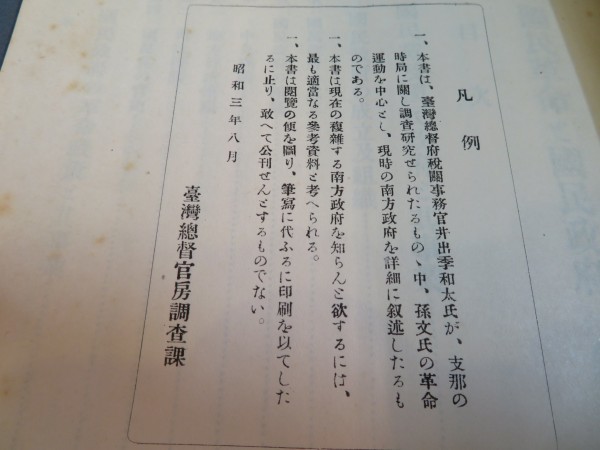 凡例
一、本書は、臺灣總督府稅關事務官井出季和太氏が、支那の
時局に關し調査研究せられたるものゝ中、孫文氏の革命
運動を中心とし、現時の南方政府を詳細に叙述したるも
のである。
一、本書は現在の複雜する南方政府を知らんと欲するには、
最も適當なる參考資料と考へられる。
一、本書は閱覽の便を圖り、筆寫に代ふるに印刷を以てした
るに止り、敢へて公刊せんとするものでない。
昭和三年八月
臺灣總督官房調査課